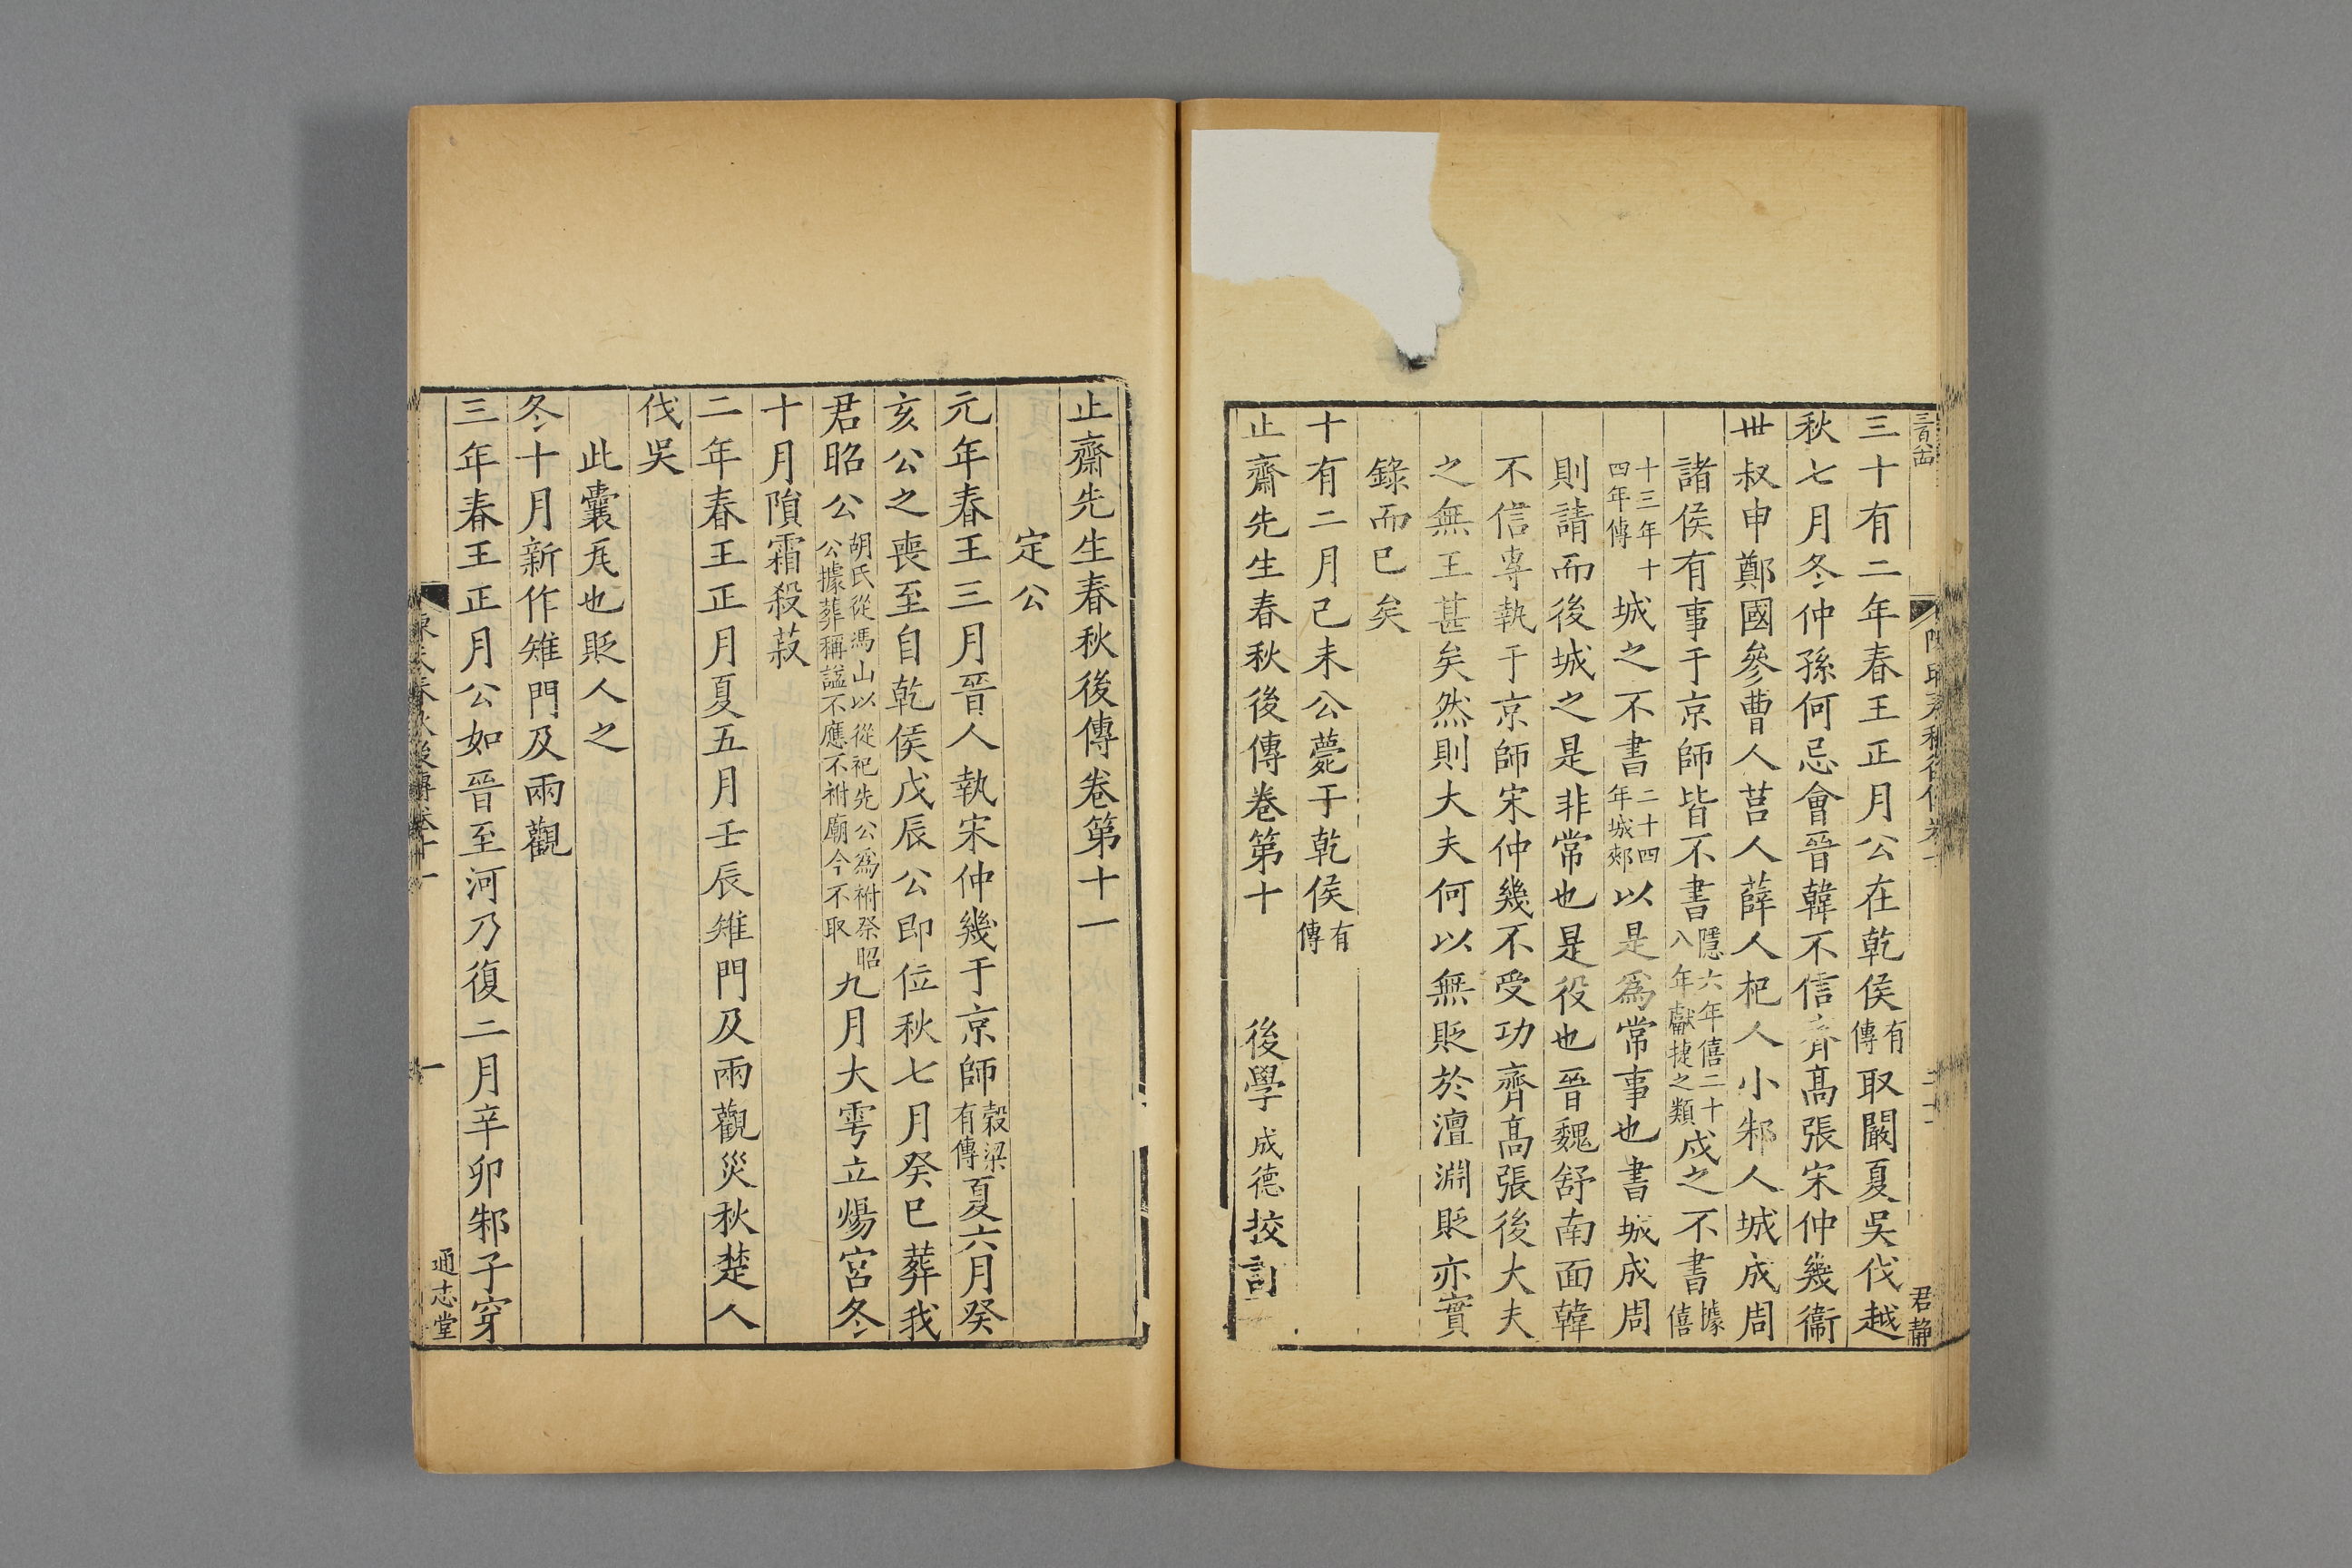 三十有二年春王正月公在乾侯有傳取闞夏吳伐越
秋七月冬仲孫何忌會晉韓不信齊髙張宋仲幾衞
丗叔申鄭國參曹人莒人薛人杞人小邾人城成周
諸侯有事于京師皆不書隱六年僖二十八年獻捷之類戍之不書據僖
十三年十四年傳城之不書二十四年城郟以是爲常事也書城成周
則請而後城之是非常也是役也晉魏舒南面韓
不信專執于京師宋仲幾不受功齊髙張後大夫
之無王甚矣然則大夫何以無貶於澶淵貶亦實
錄而已矣
十有二月己未公薨于乾侯有傳
止齋先生春秋後傳卷第十
後學成德挍訂
君靜
止齋先生春秋後傳卷第十一
定公
元年春王三月晉人執宋仲幾于京師穀梁有傳夏六月癸
亥公之喪至自乾侯戊辰公即位秋七月癸巳葬我
君昭公胡氏從馮山以從祀先公爲祔祭昭公據葬稱諡不應不祔廟今不取九月大雩立煬宮冬
十月隕霜殺菽
二年春王正月夏五月壬辰雉門及兩觀災秋楚人
伐吳
此囊瓦也貶人之
冬十月新作雉門及兩觀
三年春王正月公如晉至河乃復二月辛卯邾子穿
春秋後傳卷十一
一
通志堂